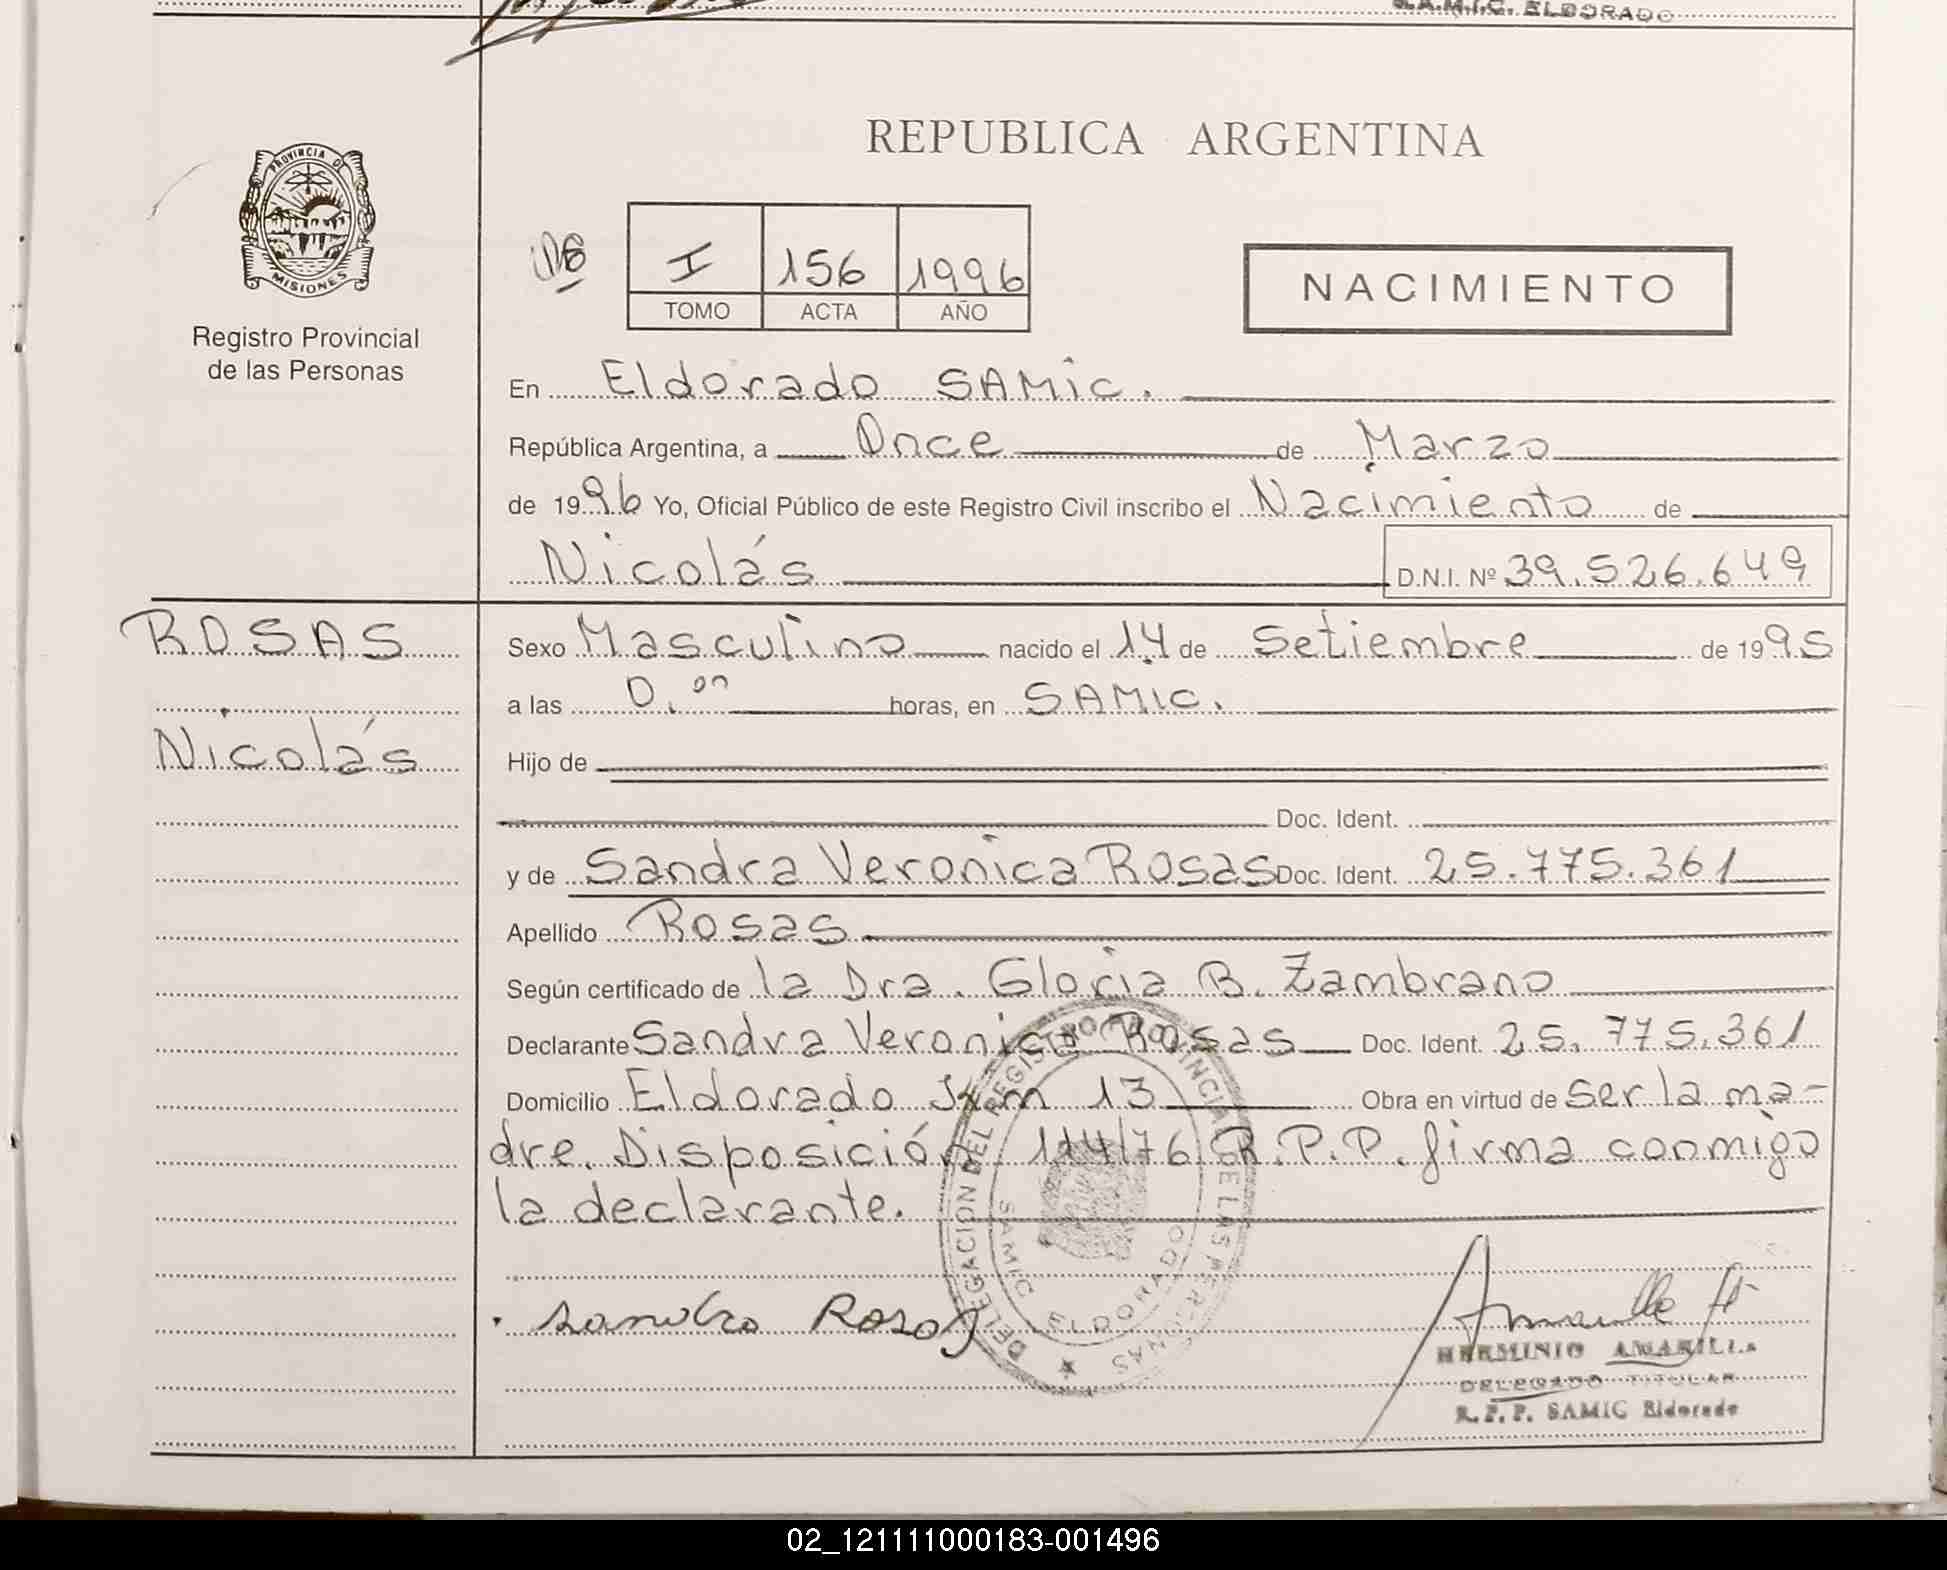 S.A.M.I.C. ELDORADO
REPUBLICA ARGENTINA
PROVINCIA DE
MISIONES
Registro Provincial
de las Personas
I 156 1996
TOMO ACTA AÑO
NACIMIENTO
En Eldorado SAMIC.
República Argentina, a Once de Marzo
de 1996 Yo, Oficial Público de este Registro Civil inscribo el Nacimiento de
Nicolás D.N.I. Nº 39.526.649
ROSAS
Nicolás
Sexo Masculino nacido el 14 de Setiembre de 1995
a las 0.00 horas, en SAMIC.
Hijo de
Doc. Ident.
y de Sandra Veronica Rosas Doc. Ident. 25.775.361
Apellido Rosas
Según certificado de la Dra. Gloria B. Zambrano
Declarante Sandra Veronica Rosas Doc. Ident. 25.775.361
Domicilio Eldorado Km 13 Obra en virtud de ser la ma-
dre. Disposición 114/76 R.P.P. firma conmigo
la declarante.
DELEGACION DEL REGISTRO PROVINCIAL DE LAS PERSONAS
SAMIC ELDORADO
Sandra Rosas
HERMINIO AMARILLA
DELEGADO TITULAR
R.P.P. SAMIC Eldorado
02_121111000183-001496